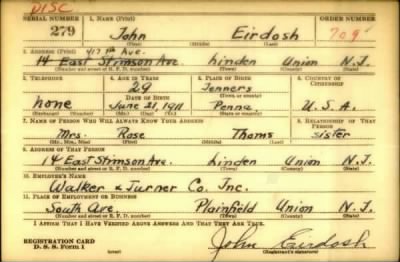 DISC
SERIAL NUMBER 1. NAME (Print) ORDER NUMBER
279 John Eirdosh 709
(First) (Middle) (Last)
2. ADDRESS (Print) 417 Ave.
14 East Stimson Ave. Linden Union N.J.
(Number and street or R. F. D. number) (Town) (County) (State)
3. TELEPHONE 4. AGE IN YEARS 5. PLACE OF BIRTH 6. COUNTRY OF CITIZENSHIP
29 Jenners
DATE OF BIRTH (Town or county)
none June 21, 1911 Penna. U.S.A.
(Mo.) (Day) (Yr.) (State or country)
7. NAME OF PERSON WHO WILL ALWAYS KNOW YOUR ADDRESS 8. RELATIONSHIP OF THAT PERSON
Mrs. Rose Thoms sister
(Mr., Mrs., Miss) (First) (Middle) (Last)
9. ADDRESS OF THAT PERSON
14 East Stimson Ave. Linden Union N.J.
(Number and street or R. F. D. number) (Town) (County) (State)
10. EMPLOYER'S NAME
Walker & Turner Co. Inc.
11. PLACE OF EMPLOYMENT OR BUSINESS
South Ave. Plainfield Union N.J.
(Number and street or R. F. D. number) (Town) (County) (State)
I AFFIRM THAT I HAVE VERIFIED ABOVE ANSWERS AND THAT THEY ARE TRUE.
REGISTRATION CARD
D. S. S. Form 1
(over)
John Eirdosh
(Registrant's signature)